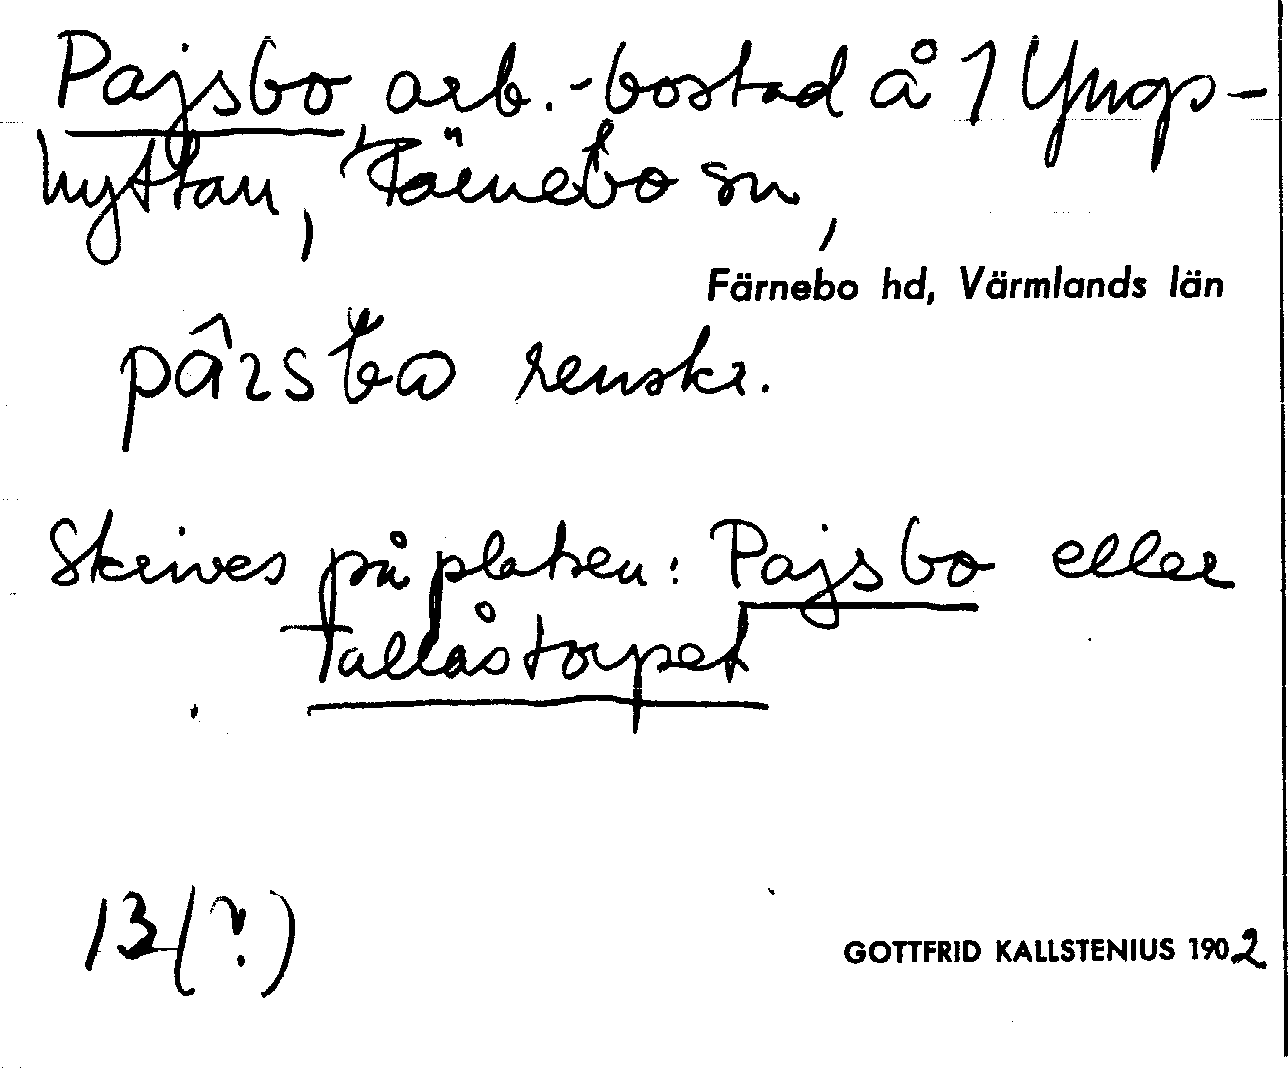 Pajsbo arb.-bostad å 1 Yngs-
hyttan, Färnebo sn,
Färnebo hd, Värmlands län
renskr.
Skrives på platsen: Pajsbo eller
Tallåstorpet
13(?)
GOTTFRID KALLSTENIUS 1902